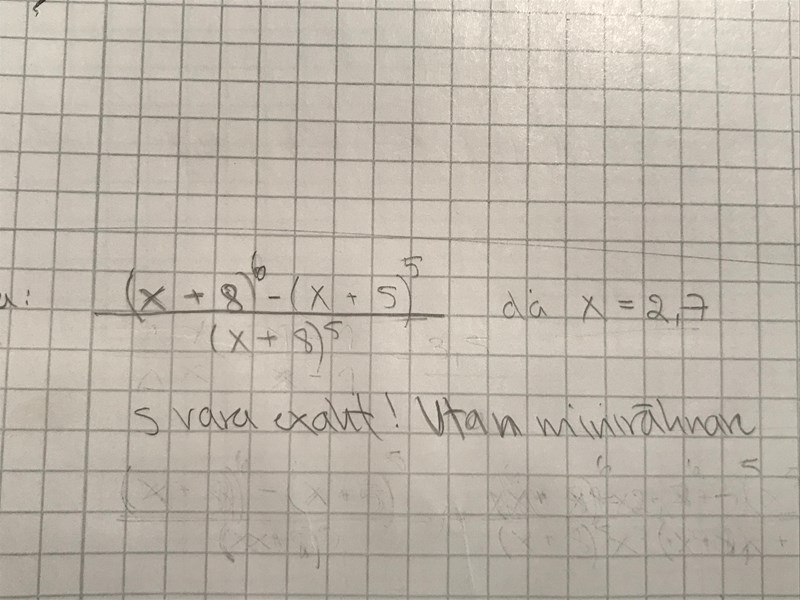 (x + 8)^6 - (x + 5)^5
(x + 8)^5
då x = 2,7
svara exakt! Utan miniräknare